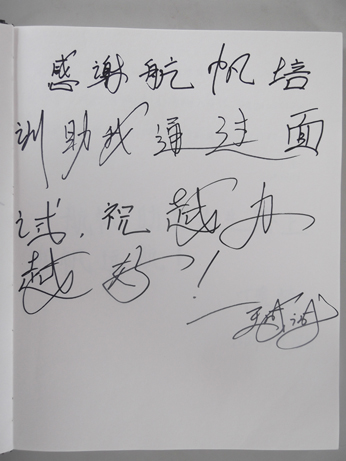 感谢航帆培
训助我通过面
试，祝越办
越好！